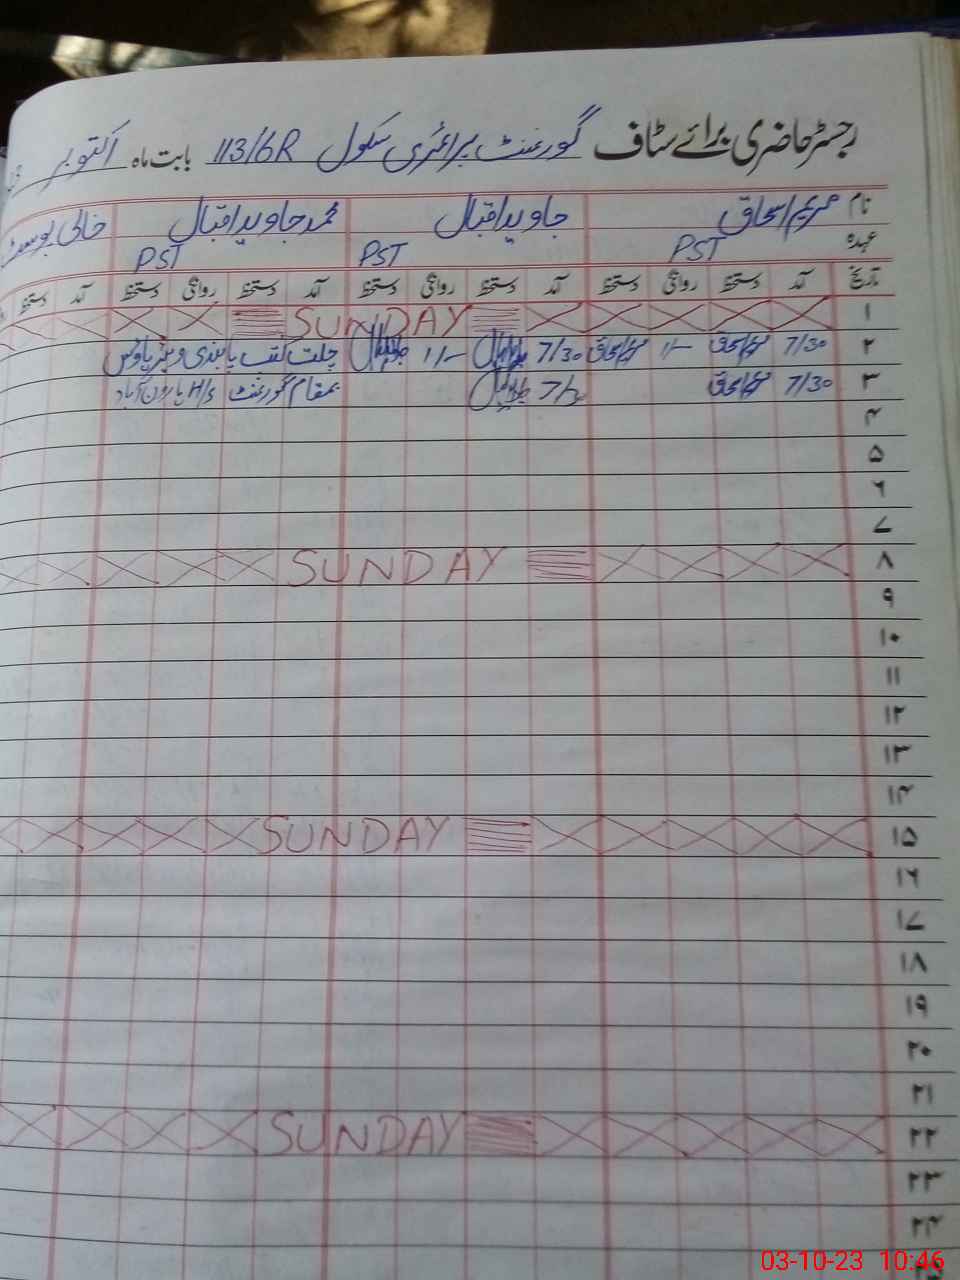 رجسٹر حاضری برائے سٹاف گورنمنٹ پرائمری سکول 113/6R بابت ماہ اکتوبر
نام مریم اسحاق جاوید اقبال محمد جاوید اقبال خالی پوسٹ
عہدہ PST PST PST
تاریخ آمد دستخط روانگی دستخط آمد دستخط روانگی دستخط آمد دستخط روانگی دستخط آمد دستخط
۱ SUNDAY
۲ 7/30 مریم اسحاق 1/- مریم اسحاق 7/30 1/-
۳ 7/30 مریم اسحاق بمقام گورنمنٹ H/S ہارون آباد
۴
۵
۶
۷
۸ SUNDAY
۹
۱۰
۱۱
۱۲
۱۳
۱۴
۱۵ SUNDAY
۱۶
۱۷
۱۸
۱۹
۲۰
۲۱
۲۲ SUNDAY
۲۳
۲۴
03-10-23 10:46